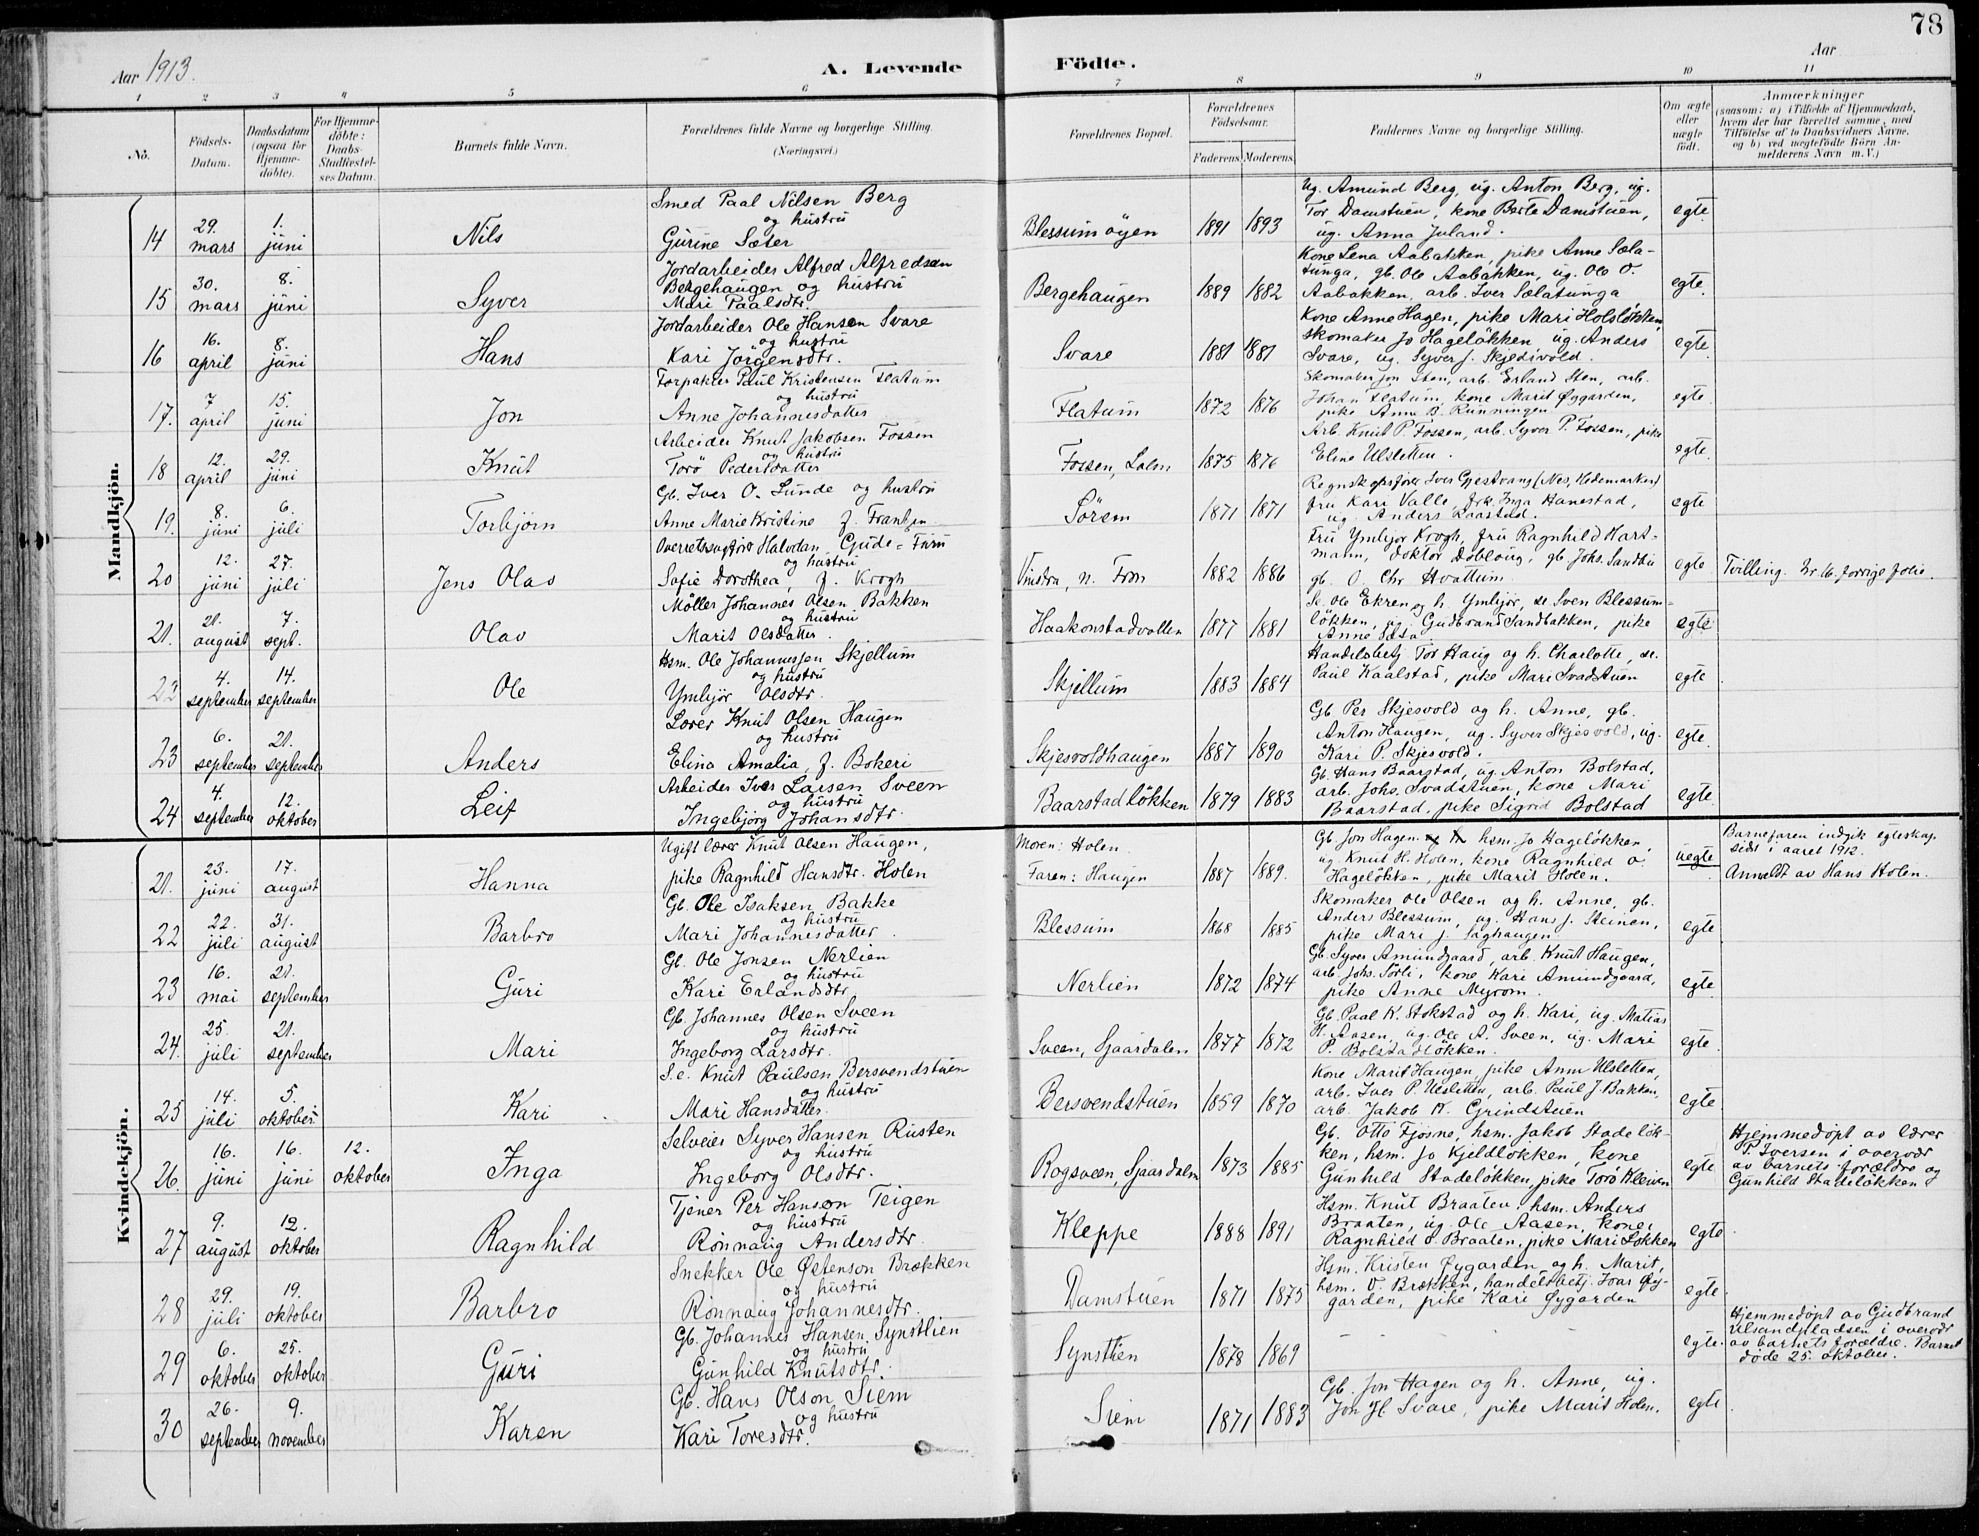 78
Aar 1913.
A. Levende Födte.
Aar
1 2 3 4 5 6 7 8 9 10 11
No.
Födsels-Datum.
Daabsdatum (ogsaa for Hjemmedöbte).
For Hjemmedöbte: Daabs-Stadfæstelses Datum.
Barnets fulde Navn.
Forældrenes fulde Navne og borgerlige Stilling. (Næringsvei.)
Forældrenes Bopæl.
Forældrenes Födselsaar.
Faderens. Moderens.
Faddernes Navne og borgerlige Stilling.
Om ægte eller uægte födt.
Anmærkninger
(saasom: a) i Tilfælde af Hjemmedaab, hvem der har forrettet samme, med Tilföielse af to Daabsvidners Navne, og b) ved uægtefödte Börn Anmelderens Navn m. V.)
Mandkjön.
14 29. mars 1. juni Nils
Smed Paal Nilsen Berg
og hustru
Gurine Sæter
Blessumöyen 1891 1893
Ug. Amund Berg, ug. Anton Berg, ug.
Tor Damstuen, kone Berte Damstuen,
ug. Anna Juland.
egte
15 30. mars 8. juni Syver
Jordarbeider Alfred Alfredsen
Bergehaugen og hustru
Mari Paalsdtr.
Bergehaugen 1889 1882
Kone Lena Aabakken, pike Anne Sæla-
tunga, gb. Ole Aabakken, ug. Ole O.
Aabakken, arb. Iver Sælatunga
egte.
16 16. april 8. juni Hans
Jordarbeider Ole Hansen Svare
og hustru
Kari Jörgensdtr.
Svare 1881 1881
Kone Anne Hagen, pike Mari Holslökken,
skomaker Jo Hagelökken, ug. Anders
Svare, ug. Syver J. Skjedsvold.
egte
17. 7 april 15. juni Jon
Forpakter Paul Kristensen Flatum
og hustru
Anne Johannesdatter
Flatum 1872 1876
Skomaker Jon Sten, arb. Erland Sten, arb.
Johan Flatum, kone Marit Øygarden,
pike Anne B. Runningen
egte.
18 12. april 29. juni Knut
Arbeider Knut Jakobsen Fossen
og hustru
Torö Pedersdatter
Fossen, Lalm 1875 1876
Arb. Knut P. Fossen, arb. Syver P. Fossen, pike
Eline Ulsletten.
egte.
19. 8. juni 6. juli Torbjørn
Gb. Iver O. Sunde og hustru
Anne Marie Kristine f. Frantzen
Sörem 1871 1871
Regnskapsfører Iver Gjestvang (Nes, Hedemarken)
fru Kari Valle, frk. Inga Hanestad,
ug. Anders Raastad.
egte
20 12. juni 27. juli Jens Olav
Overretssagfører Halvdan Gude-Furu
og hustru
Sofie Dorothea, f. Krogh
Vinstra, n. Fron 1882 1886
Fru Ymbjør Krogh, fru Ragnhild Hart-
mann, doktor Dobloug, gb. Johs. Sandbu
gb. O. Chr. Hvattum
egte
Tvilling. Nr. 16. forrige folio.
21. 21. august 7. sept. Olav
Möller Johannes Olsen Bakken
og hustru
Marit Olsdatter.
Haakonstadvollen 1877 1881
Se. Ole Ekren og h. Ymbjør, se. Sven Blessum-
løkken, ug. Gudbrand Sandbakken, pike
Anne Sæta
egte
22 4. september 14. september Ole
Hsm. Ole Johannessen Skjellum
og hustru
Ymbjør Olsdtr.
Skjellum 1883 1884
Handelsbetj. Tor Haug og h. Charlotte, se.
Paul Kaalstad, pike Mari Svadstuen
egte
23 6. september 21. september Anders
Lærer Knut Olsen Haugen
og hustru
Elina Amalia, f. Bokeri
Skjesvoldhaugen 1887 1890
Gb. Per Skjesvold og h. Anne, gb.
Anton Haugen, ug. Syver Skjesvold, ug.
Kari P. Skjesvold.
egte.
24 4. september 12. oktober Leif
Arbeider Iver Larsen Sveen
og hustru
Ingebjörg Johansdtr.
Baarstadløkken 1879 1883
Gb. Hans Baarstad, ug. Anton Bolstad,
arb. Johs. Svadstuen, kone Mari
Baarstad, pike Sigrid Bolstad
egte
Kvindekjön.
21. 23. juni 17. august Hanna
Ugift lærer Knut Olsen Haugen,
pike Ragnhild Hansdtr. Holen
Moren: Holen.
Faren: Haugen 1887 1889.
Gb. Jon Hagen, hsm. Jo Hageløkken,
ug. Knut H. Holen, kone Ragnhild O.
Hageløkken, pike Marit Holen.
uegte
Barnefaren indgik egteskap
sidst i aaret 1912.
Anmeldt av Hans Holen.
22 22. juli 31. august Barbro
Gb. Ole Isaksen Bakke
og hustru
Mari Johannesdatter.
Blessum 1868 1885
Skomaker Ole Olsen og h. Anne, gb.
Anders Blessum, ug. Hans J. Steinen,
pike Mari J. Saghaugen
egte
23 16. mai 21. september Guri
Gb. Ole Jonsen Nerlien
og hustru
Kari Erlandsdtr.
Nerlien 1872 1874
Gb. Syver Amundgaard, arb. Knut Haugen,
arb. Johs. Sörli, kone Kari Amundgaard,
pike Anne Myrom.
egte
24. 25. juli 21. september Mari
Gb. Johannes Olsen Sveen
og hustru
Ingeborg Larsdtr.
Sveen, Sjaardalen 1877 1872
Gb. Paal K. Stokstad og h. Kari, ug. Matias
H. Aasen, ug. Ole A. Sveen, ug. Mari
P. Bolstadløkken.
egte
25 14. juli 5. oktober Kari
S.e. Knut Paulsen Bersvendstuen
og hustru
Mari Hansdatter.
Bersvendstuen 1859 1870
Kone Marit Haugen, pike Anne Ulsletten,
arb. Iver P. Ulsletten, arb. Paul J. Bakken,
arb. Jakob K. Grindstuen
egte
26. 16. juni 16. juni 12. oktober Inga
Selveier Syver Hansen Rusten
og hustru
Ingeborg Olsdtr.
Rogsveen, Sjaardalen 1873 1885
Gb. Otto Fjosne, hsm. Jakob Stadeløk-
ken, hsm. Jo Kjeldløkken, kone
Gunhild Stadeløkken, pike Torö Kleiven
egte
Hjemmedøpt av lærer
P. Iversen i overvær
av barnets forældre og
Gunhild Stadeløkken
27 9. august 12. oktober Ragnhild
Tjener Per Hanson Teigen
og hustru
Rønnaug Andersdtr.
Kleppe 1888 1891
Hsm. Knut Braaten, hsm. Anders
Braaten, ug. Ole Aasen, kone
Ragnhild O. Braaten, pike Mari Løkken
egte
28 29. juli 19. oktober Barbro
Snekker Ole Østenson Brækken
og hustru
Rønnaug Johannesdtr.
Damstuen 1871 1875
Hsm. Kristen Øygarden og h. Marit,
hsm. O. Brækken, handelsbetj. Ivar Øy-
garden, pike Kari Øygarden
egte
29 6. oktober 25. oktober Guri
Gb. Johannes Hansen Synstlien
og hustru
Gunhild Knutsdtr.
Synstlien 1878 1869
- - - -
egte.
Hjemmedøpt av Gudbrand
Ulsandpladsen i overvær
av barnets forældre. Barnet
döde 25. oktober.
30 26. september 9. november Karen
Gb. Hans Olson Siem
og hustru
Kari Toresdtr.
Siem 1871 1883
Gb. Jon Hagen og h. Anne, ug.
Jon H. Svare, pike Marit Holen.
egte